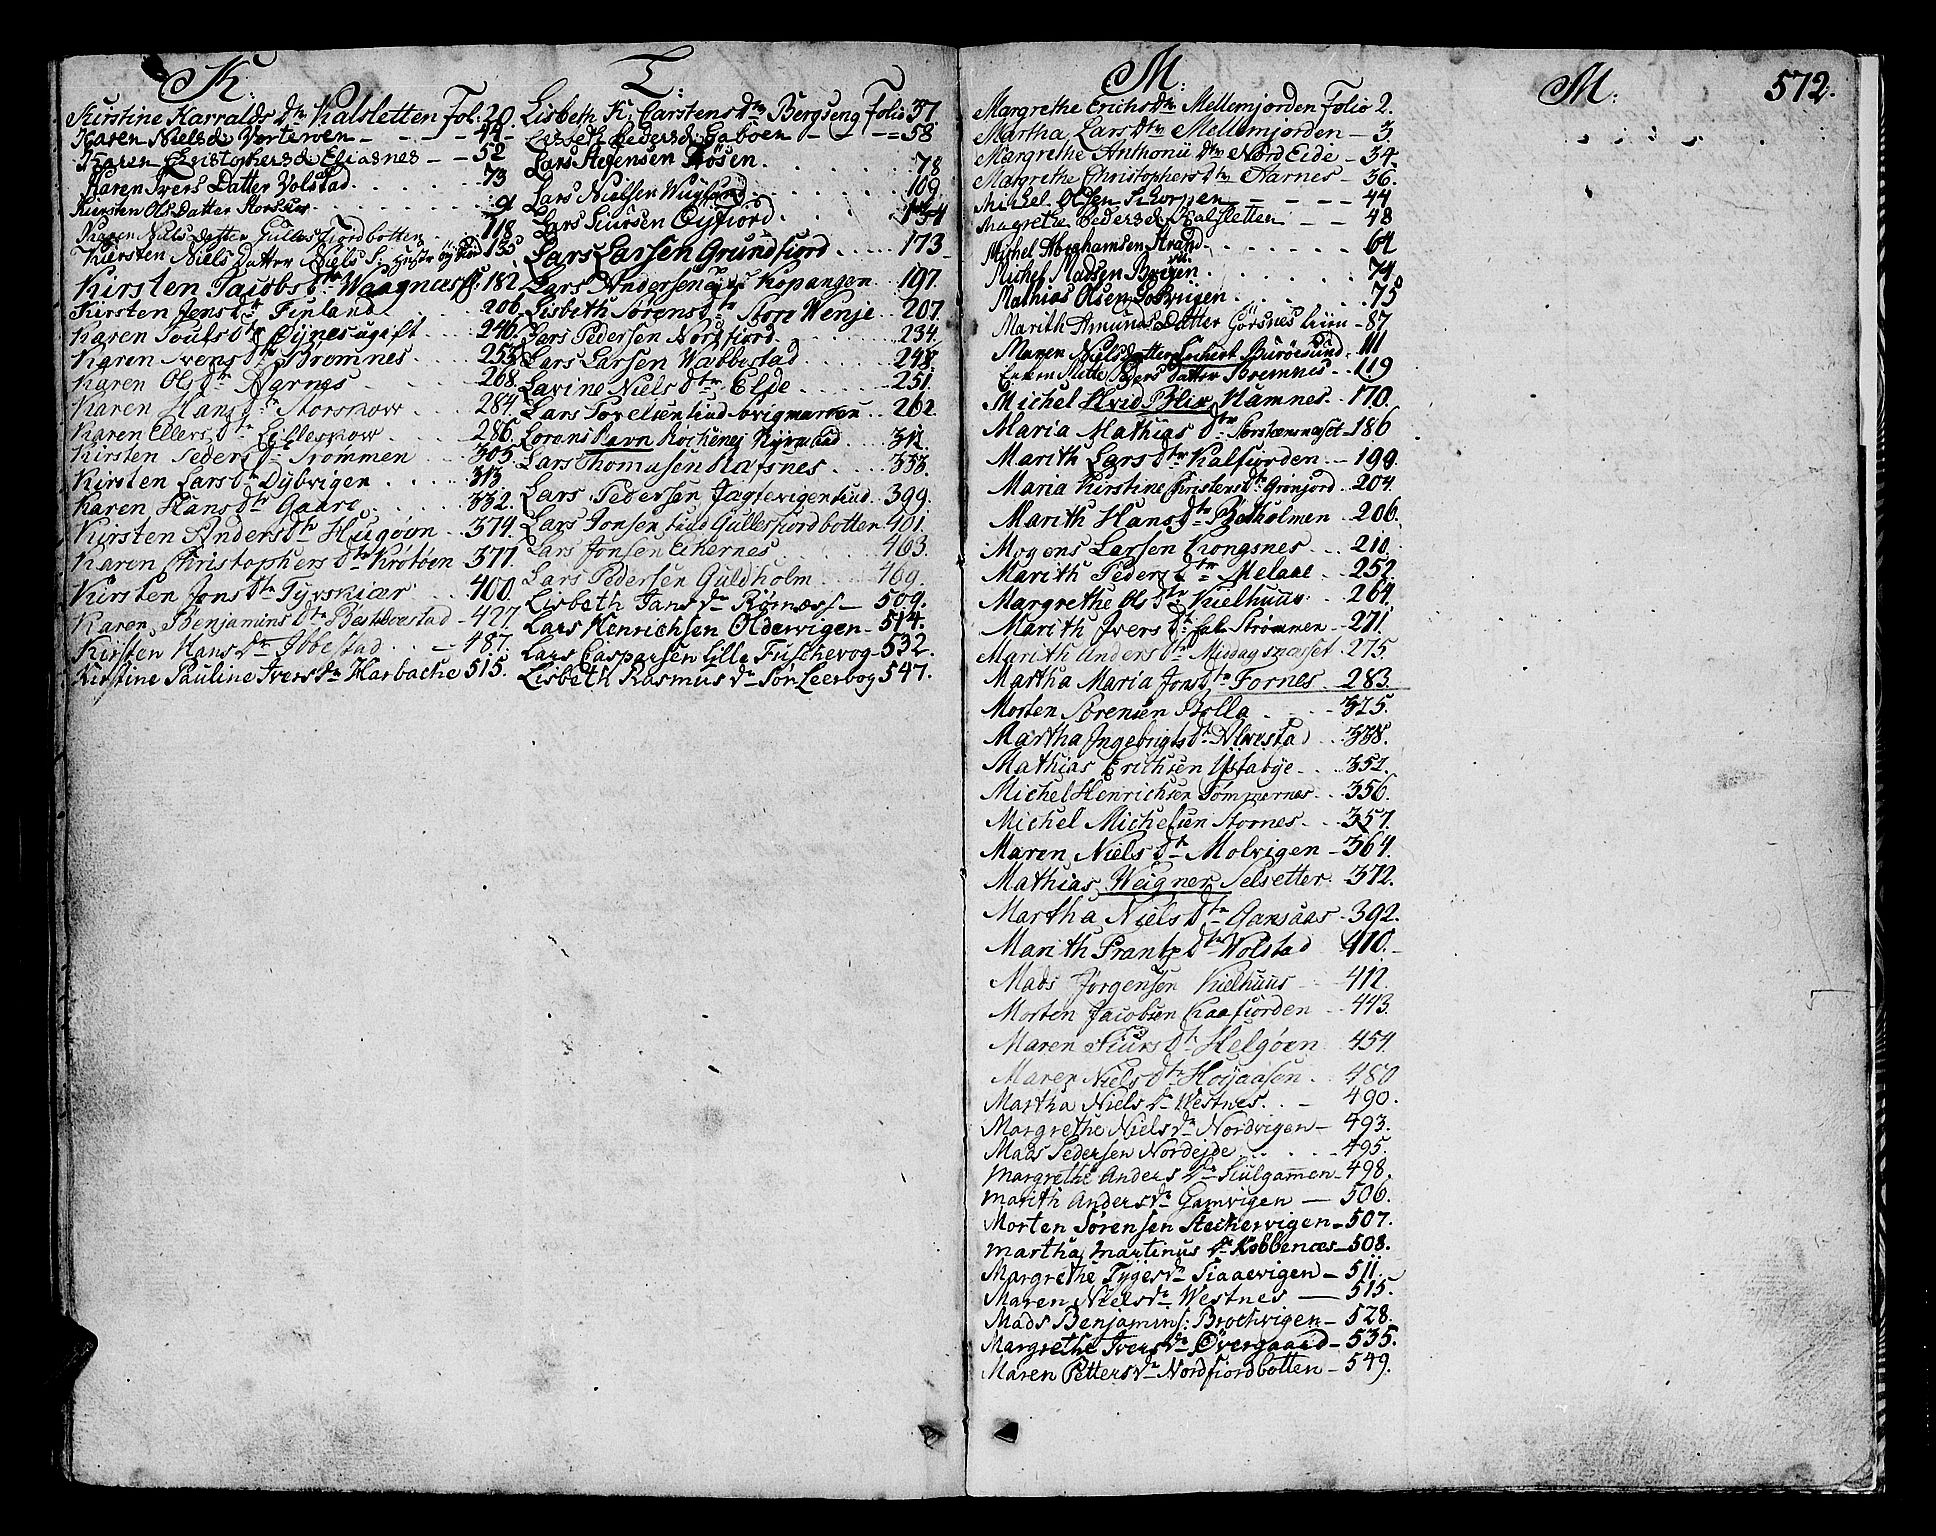 K:
Kirstine Harralds Dtr Kalsletten Fol: 20.
Karen Nielsd Vorteroen - - - 44.
Karen Christophersd Eliasnes - - 52
Karen Ivers Datter Volstad . . . . . 73
Kirsten Ols Datter Storsuus . . . . . 91
Karen Niels Datter Gullesfiordbotten . . 118
Kiersten Niels Datter Niels S: Hustr 135
Kirsten Jacobs Dtr Waagnæss: 182
Kirsten Jens Dr Finland . . . . 206.
Karen Poulsdtr Øynesugift . . . 246.
Karen Svens Dtr Bromnes . . . 253.
Karen Ols Dtr Aarnes . . . 268.
Karen Hans Dtr Storskow . . . 284.
Karen Ellers Dtr Lilleskow . . . 286.
Kirsten Peders Dtr Strømmen . . . 305.
Kirsten Lars Dtr Dybvigen . . . . 313
Karen Hans Dtr Gaare . . . . 332.
Kirsten Anders Dtr Hugøen . 374.
Karen Christophers Dtr Krøtøen 377.
Kirsten Jons Dtr Tyvskiær . . 400.
Karen Benjamins Dtr Bestebostad - 427.
Kirsten Hans Dtr Ibbestad . . - 487.
Kirstine Pauline Ivers Dr Harbache 515.
L:
Lisbeth K. Carstens Dtr Bergseng folio 37.
Lisbeth Pedersd Gaboen - - 58
Lars Stefensen Røsen . . . . . 78
Lars Nielsen Wuglund . . . . 109.
Lars Siursen Øyfiord . . . . 134
Lars Larsen Grundfiord . . . . 173.
Lars Andersen Kopangen . . 197.
Lisbeth Sørens Dtr Store Wenje . . 207.
Lars Pedersen Nordfiord . . . . . 234.
Lars Larsen Wabbestad . . . . 248.
Lavine Niels Dtr Elde . . . . 251.
Lars Povelsen lind . . 262.
Lorens Ravn Køchenes . . . 312.
Lars Thomasen Rafsnes . . . . 353.
Lars Pedersen Jagtevigen lind . . 399.
Lars Jonsen lind Gullesfiordbotten 401.
Lars Jonsen Eckernes . . . . 463.
Lars Pedersen Guldholm . . . 469.
Lisbeth Jans Dr Rømæss - 509.
Lars Henrichsen Oldervigen - 514.
Lars Caspersen Lille Fuschevog - 532.
Lisbeth Rasmus Dr Sør Leerbog 547.
M:
Margrethe Erichs Dtr Mellemjorden Folio 2.
Martha Lars Dtr Mellemjorden - 3
Margrethe Anthonii Dtr Nord Eide - 34.
Margrethe Christophers Dtr Aarnes - 36.
Michel Olsen Skorpen - - - 44
Magrethe Pedersd Kalsletten - - 48
Michel Abrahamsen Strand . . . . . . 64
Michel Madsen Brigen . . . . . . 74
Mathias Olsen . . . . . 75
Marith Amunds Datter Görsnes - 87
Maren Nielsdatter Buröesund . 111
Enken Mette Peders Datter Bremnes . . 119
Michel Hvid Blix, Hamnes . . 170.
Maria Mathias Dtr Storsteensnæset - 186
Marith Lars Dtr Kalfiorden - - 199.
Maria Kirstine Christens Dr Grønjord . 204.
Marith Hans Dtr Bieholmen . 206.
Mogens Larsen Kongsnes . . . 210.
Marith Peders Dtr Melaae . . 252.
Margrethe Ols Dtr Kielhuus . . 264.
Marith Ivers Dr Strømmen - 271.
Marith Anders Dtr Middagsnæsset . 275.
Martha Maria Jons Dtr Fornes . 283.
Morten Sørensen Bolla . . . . 325.
Martha Ingebrigts Dr Alvestad . . 338.
Mathias Erichsen Ystabye . . . 352.
Michel Henrichsen Tømmernes . . 356.
Michel Michelsen Stornes . . . 357.
Maren Niels Dtr Molvigen - 364.
Mathias Weigner Selsetter . 372.
Martha Niels Dtr Gansaas . 392.
Marith Frantz Dtr Wolstad 410.
Mads Jørgensen Kielhuus . . 412.
Morten Jacobsen Kaafiorden . . 443.
Maren Siurs Dr Helgøen . 454.
Maren Niels Dtr Hoyaasen . . 480
Martha Niels Dr Westnes . . - 490.
Margrethe Niels Dr Nordvigen - 493.
Mads Pedersen Nordeide . . . - 495.
Margrethe Anders Dtr Siulgamen - 498.
Marith Anders Dr Gamvigen - 506.
Morten Sørensen Steckervigen - 507.
Martha Martinus Dr Købbenæs - 508.
Margrethe Tyges Dr Siaaevigen - 511.
Maren Niels Dr Westnes - 515.
Mads Benjamins: Brochvigen - 528.
Margrethe Ivers Dr Øvergaard - 535.
Maren Petters Dr Nordfiordbotten - 549.
M:
572.